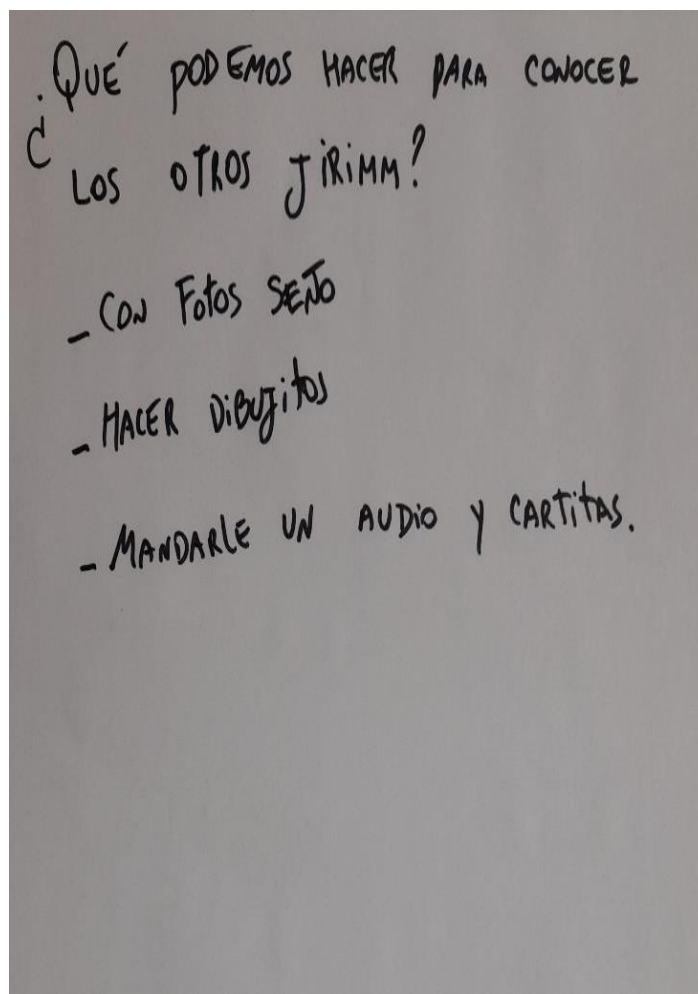 ¿QUÉ PODEMOS HACER PARA CONOCER
LOS OTROS JiRiMM?
- CON FOtOS SEÑO
- HACER DiBUJitOS
- MANDARLE UN AUDiO Y CARTitAS.